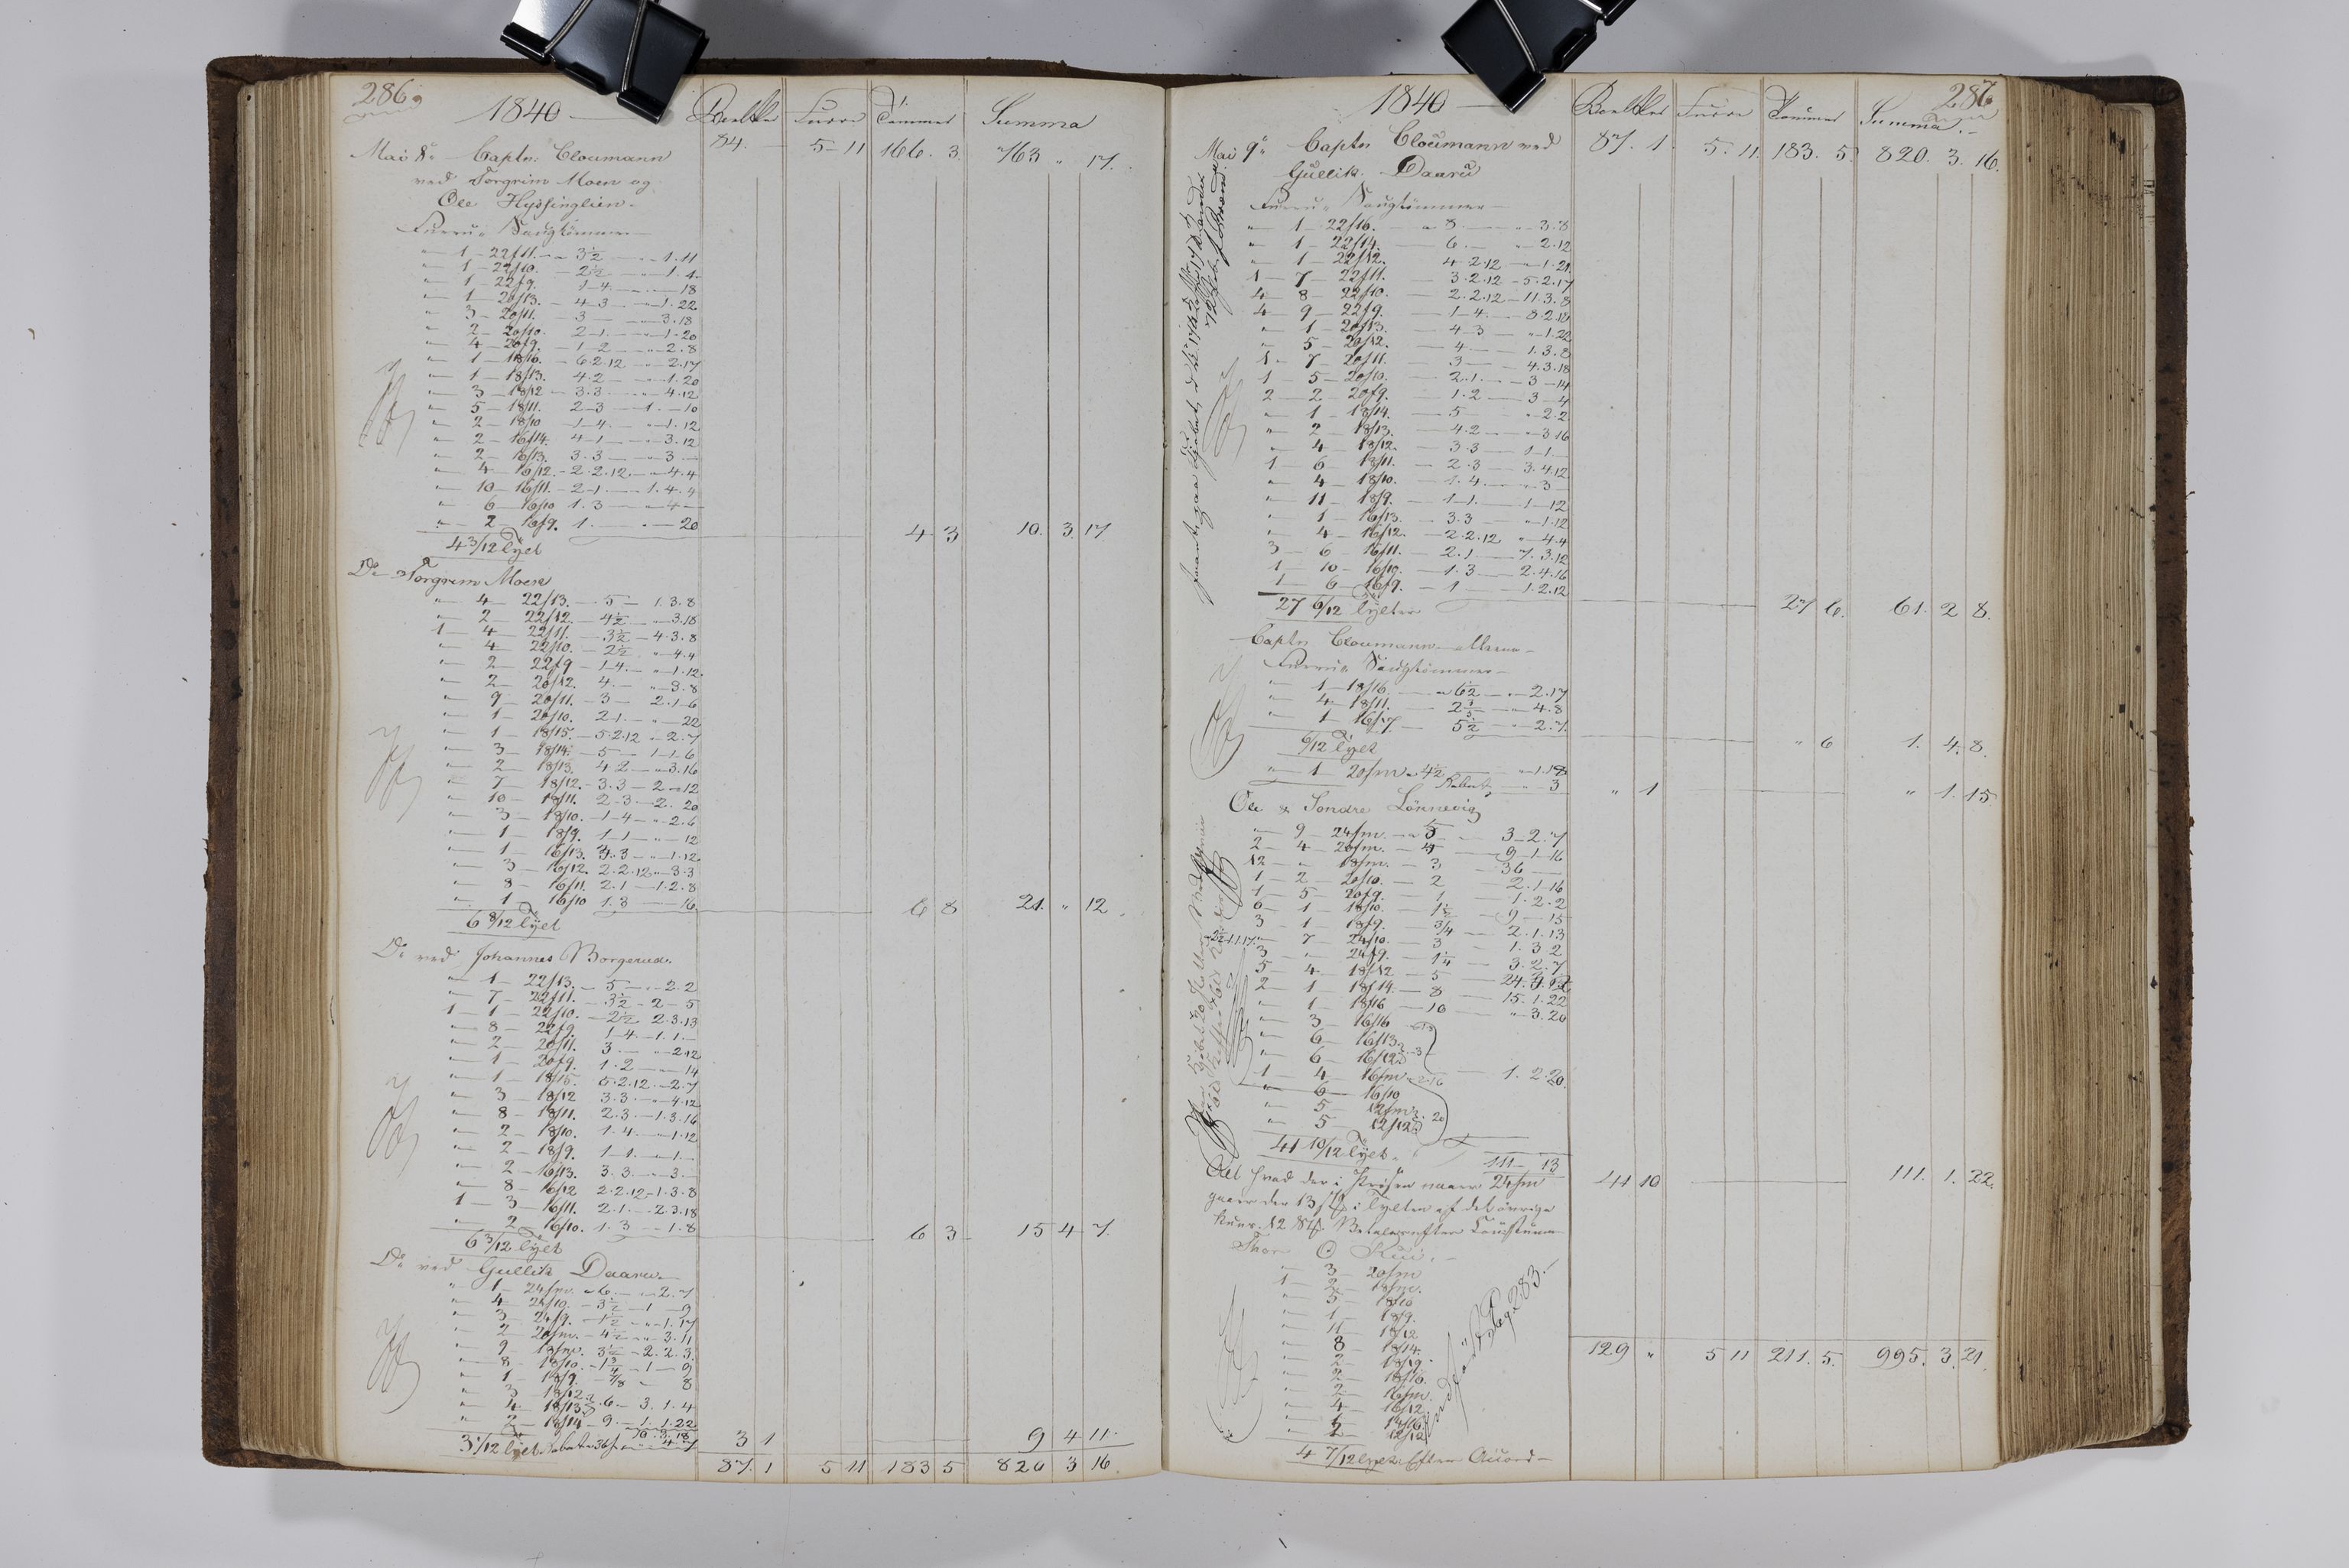 286
1840 Bielker Furru Tömmer Summa
84. — 5 — 11 166. 3. 763 " 17.
Mai 8de Captn Cloumann
ved Torgrim Moen og
Ole Hyssinglien
Furru Saugtömmer
" 1 — 22/11. — 3½ — " 1. 11
" 1 — 22/10. — 2½ — " 1. 4.
" 1 — 22/9. 1-4 — " — 18
" 1 — 20/13. — 4-3 — " 1. 22
" 3 — 20/11. — 3 — " 3. 18
" 2 — 20/10. 2-1. — " 1. 20
" 4 — 20/9. — 1-2 — " 2. 8
" 1 — 18/16. — 6. 2. 12 — " 2. 17
" 1 — 18/13. 4. 2 — " 1. 20
" 3 — 18/12 — 3. 3 — " 4. 12
" 5 — 18/11. 2-3 — 1. — 10
" 2 — 18/10 — 1-4. — " 1. 12
" 2 — 16/14. 4-1 — " 3. 12
" 2 — 16/13. 3. 3 — " 3 —
" 4 — 16/12. — 2. 2. 12. — " 4. 4
" 10 — 16/11. — 2-1 — 1. 4. 4
" 6 — 16/10 1. 3 — " 4 —
" 2 — 16/9. 1. — " — 20
4 3/12 Tylt 4 3 10. 3. 17
Do Torgrim Moen
" 4 — 22/13. — 5 — 1. 3. 8
" 2 — 22/12. — 4½ — " 3. 18
1 — 4 — 22/11. — 3½ — 4. 3. 8
" 4 — 22/10. — 2½ " 4. 4
" 2 — 22/9 — 1-4. — " 1. 12.
" 2 — 20/12. 4. — " 3. 8
" 9 — 20/11. — 3 — 2. 1-6
" 1 — 20/10. 2-1. — " — 22
" 1 — 18/15. — 5. 2. 12 " 2. 7
" 3 — 18/14. — 5 — 1-1. 6
" 2 — 18/13. 4-2 — " 3. 16
" 7 — 18/12. — 3. 3 — 2 — 12
" 10 — 18/11. 2-3 — 2. 20
" 3 — 18/10. — 1-4 — " 2. 6
" 1 — 18/9. 1-1 — " — 12
" 1 — 16/13. 3. 3 — " 1. 12
" 3 — 16/12. 2. 2. 12 " 3. 3
" 8 — 16/11. 2. 1 — 1. 2. 8
" 1 — 16/10 1. 3 — — 16
6 8/12 Tylt 6 8 21. " 12.
Do ved Johannes Borgerud.
" 1 — 22/13. — 5 — " 2. 2
" 7 — 22/11. — 3½ — 2 — 5
1 — 1 — 22/10. — 2½ 2. 3. 13
" 8 — 22/9. 1-4. — 1. 1. —
" 2 — 20/11. 3 — " 2. 12
" 1 — 20/9. 1. 2 — — 14
" 1 — 18/15. 5. 2. 12. — 2. 7
" 3 — 18/12 3. 3. — " 4. 12
" 8 — 18/11. 2. 3. — 1. 3. 16
" 2 — 18/10. 1. 4. — " 1. 12
" 2 — 18/9. 1-1. — " 1. —
" 2 — 16/13. 3. 3. — " 3. —
" 8 — 16/12 2. 2. 12. — 1. 3. 8
1 — 3 — 16/11. 2. 1. — 2. 3. 18
" 2 — 16/10. 1. 3 — 1. 8
6 3/12 Tylt 6 3 15 4 7.
Do ved Gullik Daaru.
" 1 — 24/m. — 6. — " 2. 7
" 4 — 24/10. — 3½ — 1 — 9
" 3 — 24/9. — 1½ — " 1. 17
" 2 — 20/m. — 4½ — " 3. 11
" 9 — 18/m. 3½ — 2. 2. 3
" 8 — 18/10. — 1¾ — 1 — 9
" 1 — 18/9. — 7/8 — 8
" 3 — 18/12
" 4 — 18/13 6 — 3. 1. 4
" 2 — 18/14 — 9. — 1. 1. 22
3 1/12 Tylt 3 1 9 4 11.
87. 1 5 11 183 5 820 3 16
287
1840 Bielker Furru Tömmer Summa
87. 1. 5. 11. 183. 5. 820. 3. 16.
Mai 9de Captn Cloumann ved
Gullik Daaru
Furru Saugtömmer
" 1 — 22/16. — a 8. — " 3. 8
" 1 — 22/14. — 6. — " 2. 12
" 1 — 22/12. 4-2. 12 — " 1. 21.
1 — 7 — 22/11. — 3. 2. 12 — 5. 2. 17
4 — 8 — 22/10. — 2. 2. 12 — 11. 3. 8
4 — 9 — 22/9. — 1-4. — 8. 2. 18
" 1 — 20/13. — 4-3 — " 1. 22
" 5 — 20/12. — 4 — 1. 3. 8
1 — 7 — 20/11. — 3 — 4. 3. 18
1 5 — 20/10. — 2. 1. — 3 — 14
2 2 — 20/9. — 1. 2 — 3 — 4
" 1 — 18/14. — 5 — " 2. 2
" 2 — 18/13. — 4. 2 — " 3. 16
" 4 — 18/12. — 3. 3 — 1-1. —
1 6 — 18/11. — 2. 3 — 3. 4. 12
" 4 — 18/10. — 1. 4. — " 3 —
" 11 — 18/9. — 1-1. — 1 — 12
" 1 — 16/13. — 3. 3 — " 1. 12
" 4 — 16/12. — 2. 2. 12 " 4. 4
3 — 6 — 16/11. — 2. 1 — 7. 3. 12
1 — 10 — 16/10. — 1. 3 — 2. 4. 16
1 — 6 — 16/9. — 1 — 1. 2. 12
27 6/12 Tylter 27 6. 61. 2 8.
Captn Cloumann
Furru Saugtömmer
" 1 — 18/16. — a 6½ — " 2. 17
" 4 — 18/11. — 2 — " 4. 8
" 1 — 16/17. — 5½ — " 2. 7.
6/12 Tylt " 6 1. 4. 8.
" 1 — 20/m a 4½ — " 1. 18
3 " 1 " 1. 15
Ole & Sondre Lönnevig
" 9 — 24/m. — a 5 — 3-2. 7
2 — 4 — 20/m. — 4 — 9-1-16
12 — " 18/m. — 3 — 36 —
1 — 2 — 20/10. — 2 — 2. 1-16
1 — 5 — 20/9. — 1 — 1. 2. 2
6 — 1 — 18/10. — 1½ — 9 — 15
3 — 1 — 18/9. — 3/4 — 2. 1. 13
" 7 — 24/10. — 3 — 1. 3 2
3 — " 24/9. — 1¼ — 3. 2. 7
5 — 4 — 18/12 — 5 — 24.
2 — 1 — 18/14. — 8 — 15. 1. 22
" 1 — 18/16 — 10 — " 3. 20
" 3 — 16/16
" 6 — 16/13
" 6 — 16/12
1 4 — 16/m — 1. 2. 20.
" 6 — 16/10
" 5 — 12/m
" 5 — 12/12 20
41 10/12 Tylt. 111 — 13
41 10 111. 1. 22.
Alt hvad der i Pröisen naaer 24/m
gaaer der 13 i Tylten af det övrige
kuns 12 Betales efter
Thor O Kui.
" 3 — 20/m
1 — 2 — 18/m.
" 5 — 18/10
" 1 — 18/9.
" 11 — 18/12
" 8 — 18/14.
" 2 — 18/19.
" 2 — 18/16.
" 2 — 16/m.
" 4 — 16/12.
" 1 — 14/16
" 2 — 12/12
Indfört Pag 283.
4 7/12 Tylt Efter Accord
129 " 5 11 211. 5. 995. 3. 21.